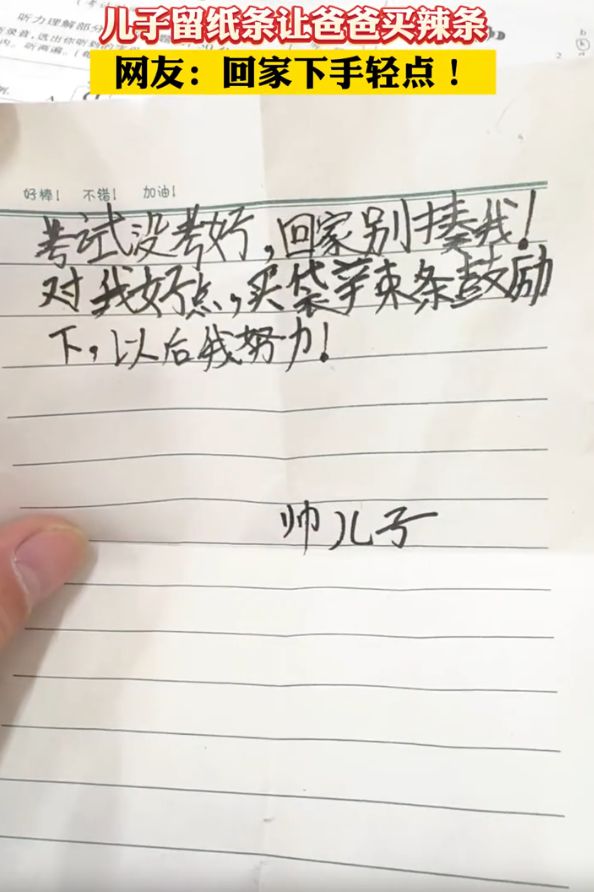 儿子留纸条让爸爸买辣条
网友：回家下手轻点！
听力理解部分
好棒！ 不错！ 加油！
考试没考好，回家别揍我！
对我好点，买袋辛束条鼓励
下，以后我努力！
帅儿子